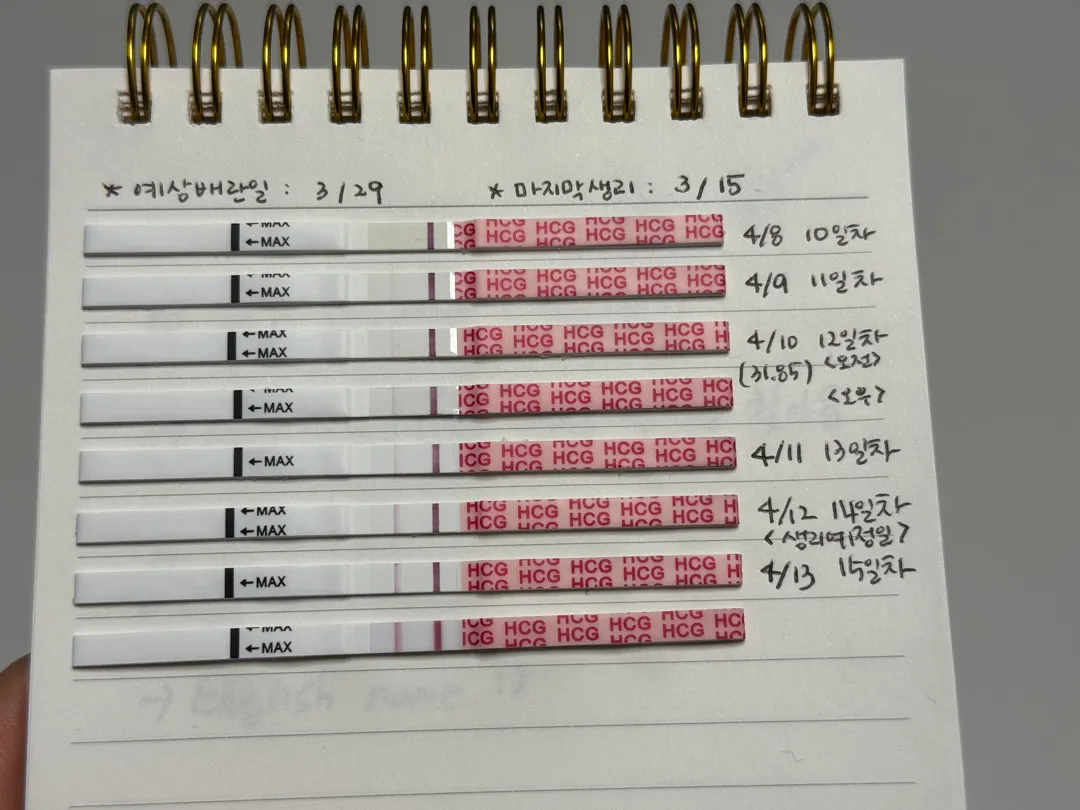 * 예상배란일 : 3/29 * 마지막생리 : 3/15
←MAX HCG HCG HCG HCG 4/8 10일차
←MAX HCG HCG HCG HCG 4/9 11일차
←MAX HCG HCG HCG HCG 4/10 12일차
(31.85) <오전>
←MAX HCG HCG HCG HCG <오후>
←MAX HCG HCG HCG HCG 4/11 13일차
←MAX HCG HCG HCG HCG 4/12 14일차
<생리예정일>
←MAX HCG HCG HCG HCG 4/13 15일차
←MAX HCG HCG HCG HCG